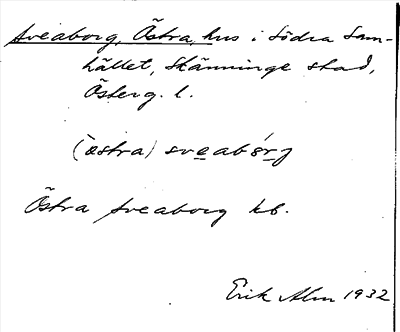 Sveaborg, Östra, hus i södra Sam-
hället, Skänninge stad,
Österg. l.
(östra) sveabórj
Östra Sveaborg kb.
Erik Alm 1932